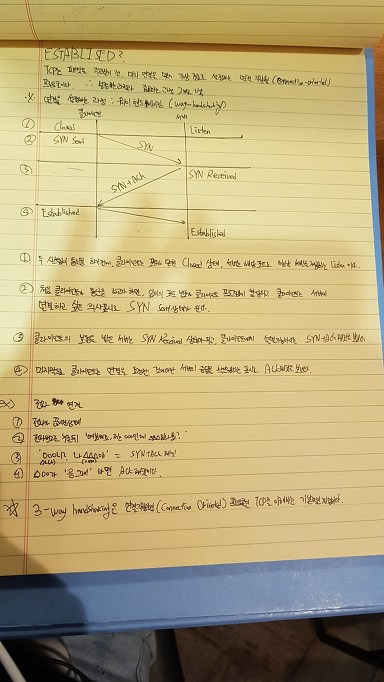 ESTABLISED?
TCP는 패킷을 전송하기 전, 먼저 연결을 맺어 가상 경로를 설정하는 연결 지향형 (Connection-oriental)
프로토콜이다.
* 연결을 설정하는 과정 : 쓰리 핸드쉐이킹 (3way-handshaking)
클라이언트 서버
① Closed Listen
② SYN Sent SYN
③ SYN+Ack SYN Received
④ Established
Established
① 두 시스템이 통신을 하기 전에, 클라이언트는 포트가 닫힌 Closed 상태, 서버는 해당 포트로 항상 서비스를 제공하는 Listen 이다.
② 처음 클라이언트가 통신을 하고자 하면, 임의의 포트 번호가 클라이언트 프로그램에 할당되고 클라이언트는 서버에
연결하고 싶은 의사표시로 SYN Sent 상태가 된다.
③ 클라이언트의 요청을 받은 서버는 SYN Received 상태가 되고, 클라이언트에게 SYN+Ack 패킷을 보낸다.
④ 마지막으로 클라이언트는 연결을 요청한 것에 대한 서버의 응답을 확인했다는 표시로 Ack 패킷을 보낸다.
ex) 전화 연결
①
② '여보세요, 저는 OOO인데 △△△있나요?'
③ 'OOO니? 나 △△△야' = SYN+Ack 패킷
④ OOO가 '응 그래' 하면 Ack 패킷이다.
* 3-way handshaking은 연결지향형 (Connection Oriented) 프로토콜인 TCP를 이해하는 기본적인 개념이다.